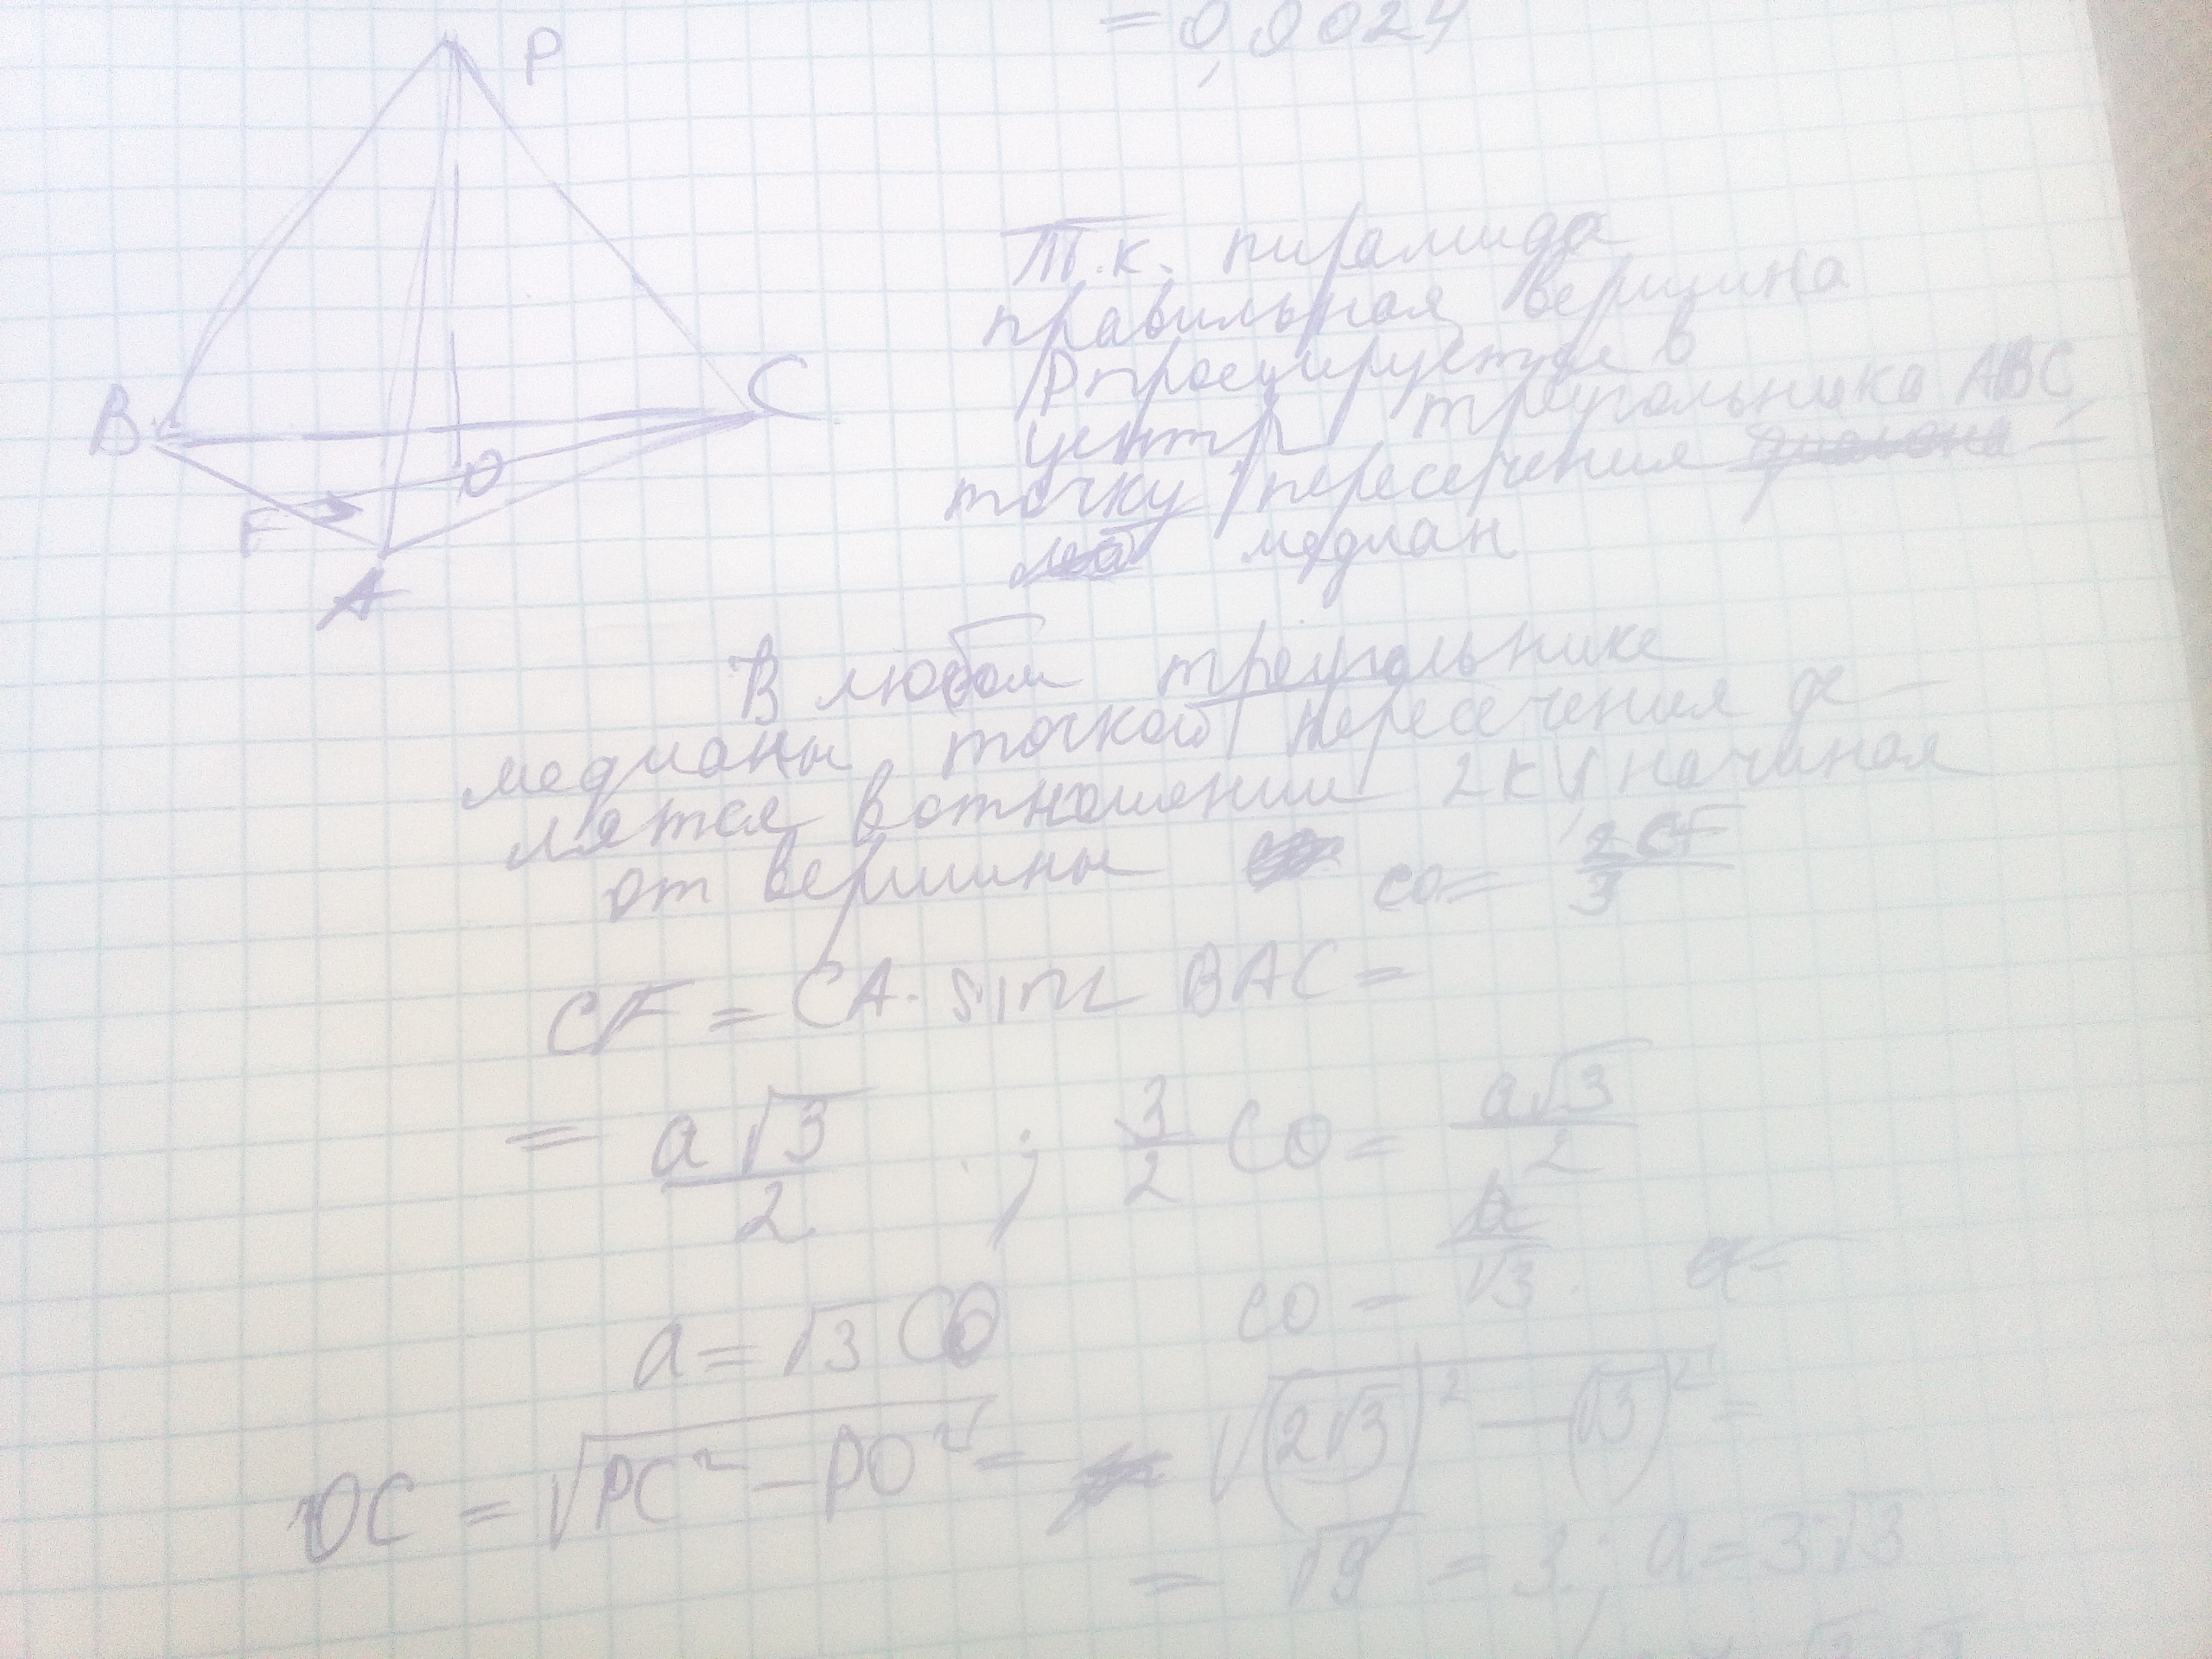 = 0,0024
P
B
C
O
F
A
Т.к. пирамида
правильная вершина
P проецируется в
центр треугольника ABC,
точку пересечения
медиан
В любом треугольнике
медианы точкой пересечения де-
лятся в отношении 2 к 1, начиная
от вершины CO = 2CF/3
CF = CA · sin∠BAC =
= a√3/2 ; 3/2 CO = a√3/2
a = √3 CO CO = a/√3 .
OC = √(PC² - PO²) = √((2√3)² - (√3)²) =
= √9 = 3 ; a = 3√3